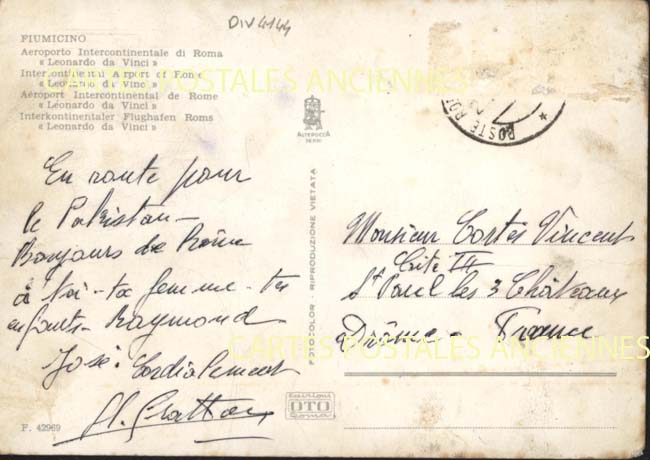 DIV4144
FIUMICINO
Aeroporto Intercontinentale di Roma
« Leonardo da Vinci »
Intercontinental Airport of Rome
« Leonardo da Vinci »
Aéroport Intercontinental de Rome
« Leonardo da Vinci »
Interkontinentaler Flughafen Roms
« Leonardo da Vinci »
CARTES POSTALES ANCIENNES
ALTEROCCA
TERNI
POSTE
FOTOCOLOR - RIPRODUZIONE VIETATA
En route pour
le Pakistan -
Bonjours de Rome
à toi - ta femme - tes
enfants - Raymond
José. Cordialement
Monsieur Cortes Vincent
Cité
St Paul les 3 Châteaux
Drôme - France
CARTES POSTALES ANCIENNES
Edizioni
OTO
Roma
F. 42969